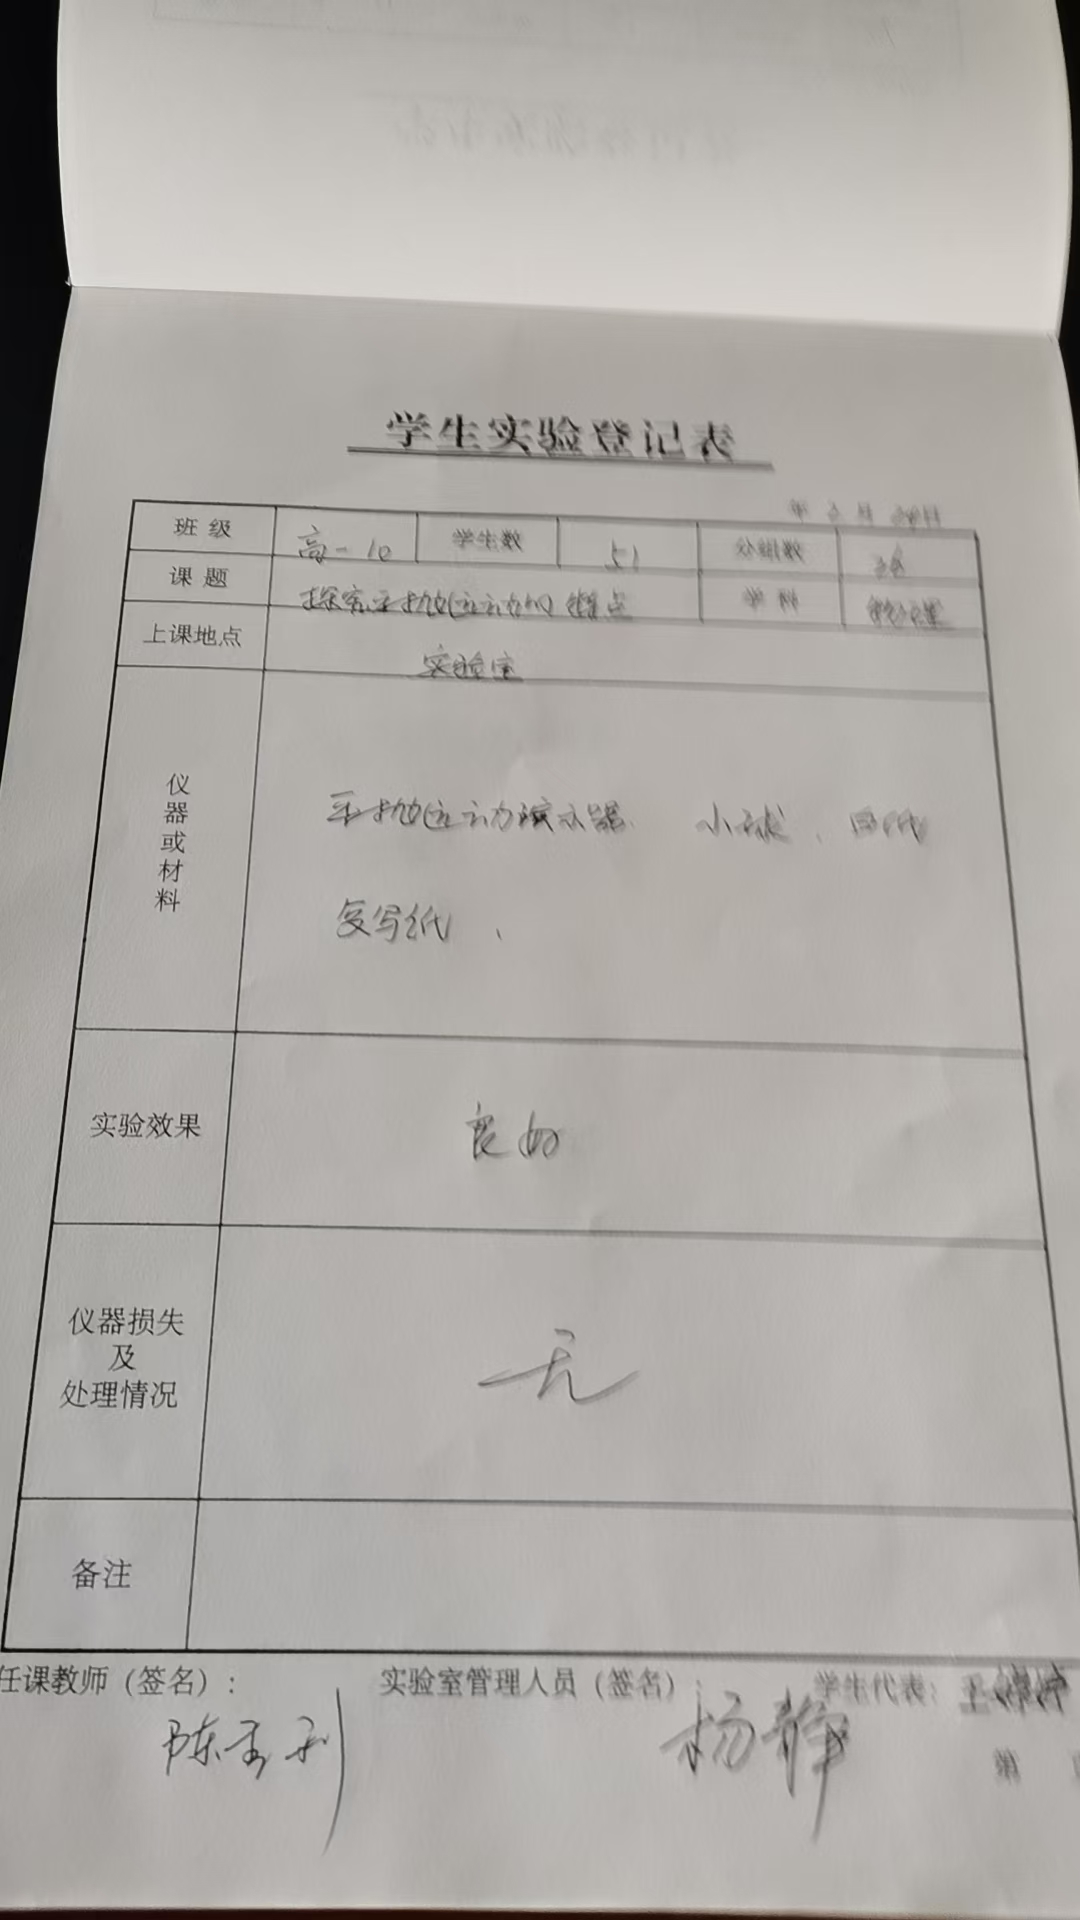 学生实验登记表
年 3 月 日
班 级 高一10 学生数 51 分组数
课 题 探究平抛运动的特点 学 科 物理
上课地点 实验室
仪器或材料 平抛运动演示器、小球、白纸
复写纸、
实验效果 良好
仪器损失
及
处理情况 无
备注
任课教师（签名）： 实验室管理人员（签名）： 学生代表：
杨静
第 页